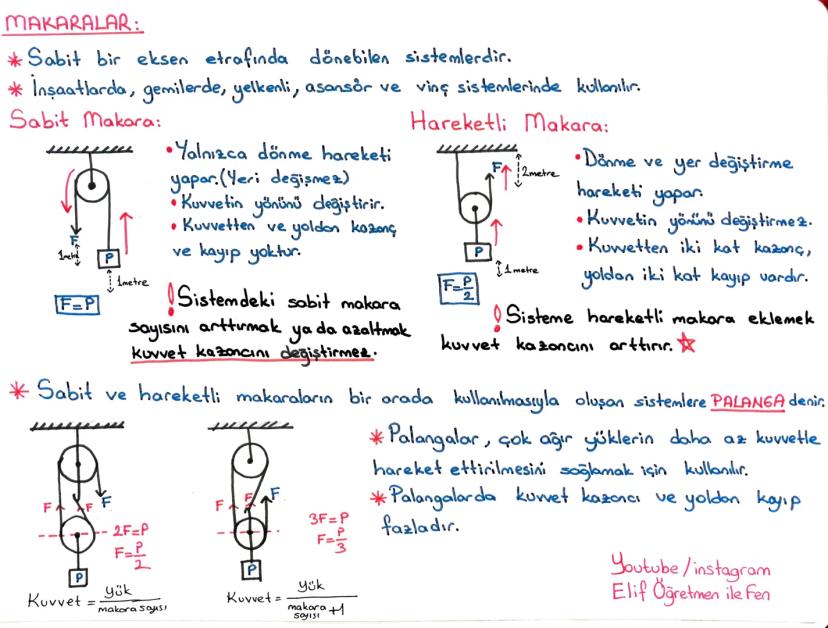 MAKARALAR:
* Sabit bir eksen etrafında dönebilen sistemlerdir.
* İnşaatlarda, gemilerde, yelkenli, asansör ve vinç sistemlerinde kullanılır.
Sabit Makara:
• Yalnızca dönme hareketi
yapar.(Yeri değişmez)
• Kuvvetin yönünü değiştirir.
• Kuvvetten ve yoldan kazanç
ve kayıp yoktur.
F
1metre
P
1metre
F=P
! Sistemdeki sabit makara
sayısını arttırmak ya da azaltmak
kuvvet kazancını değiştirmez.
Hareketli Makara:
F
2metre
P
1metre
F=P/2
• Dönme ve yer değiştirme
hareketi yapar.
• Kuvvetin yönünü değiştirmez.
• Kuvvetten iki kat kazanç,
yoldan iki kat kayıp vardır.
! Sisteme hareketli makara eklemek
kuvvet kazancını arttırır.
* Sabit ve hareketli makaraların bir arada kullanılmasıyla oluşan sistemlere PALANGA denir.
F F F
2F=P
F=P/2
P
Kuvvet = yük / makara sayısı
F F F
3F=P
F=P/3
P
Kuvvet = yük / makara sayısı +1
* Palangalar, çok ağır yüklerin daha az kuvvetle
hareket ettirilmesini sağlamak için kullanılır.
* Palangalarda kuvvet kazancı ve yoldan kayıp
fazladır.
Youtube/instagram
Elif Öğretmen ile Fen